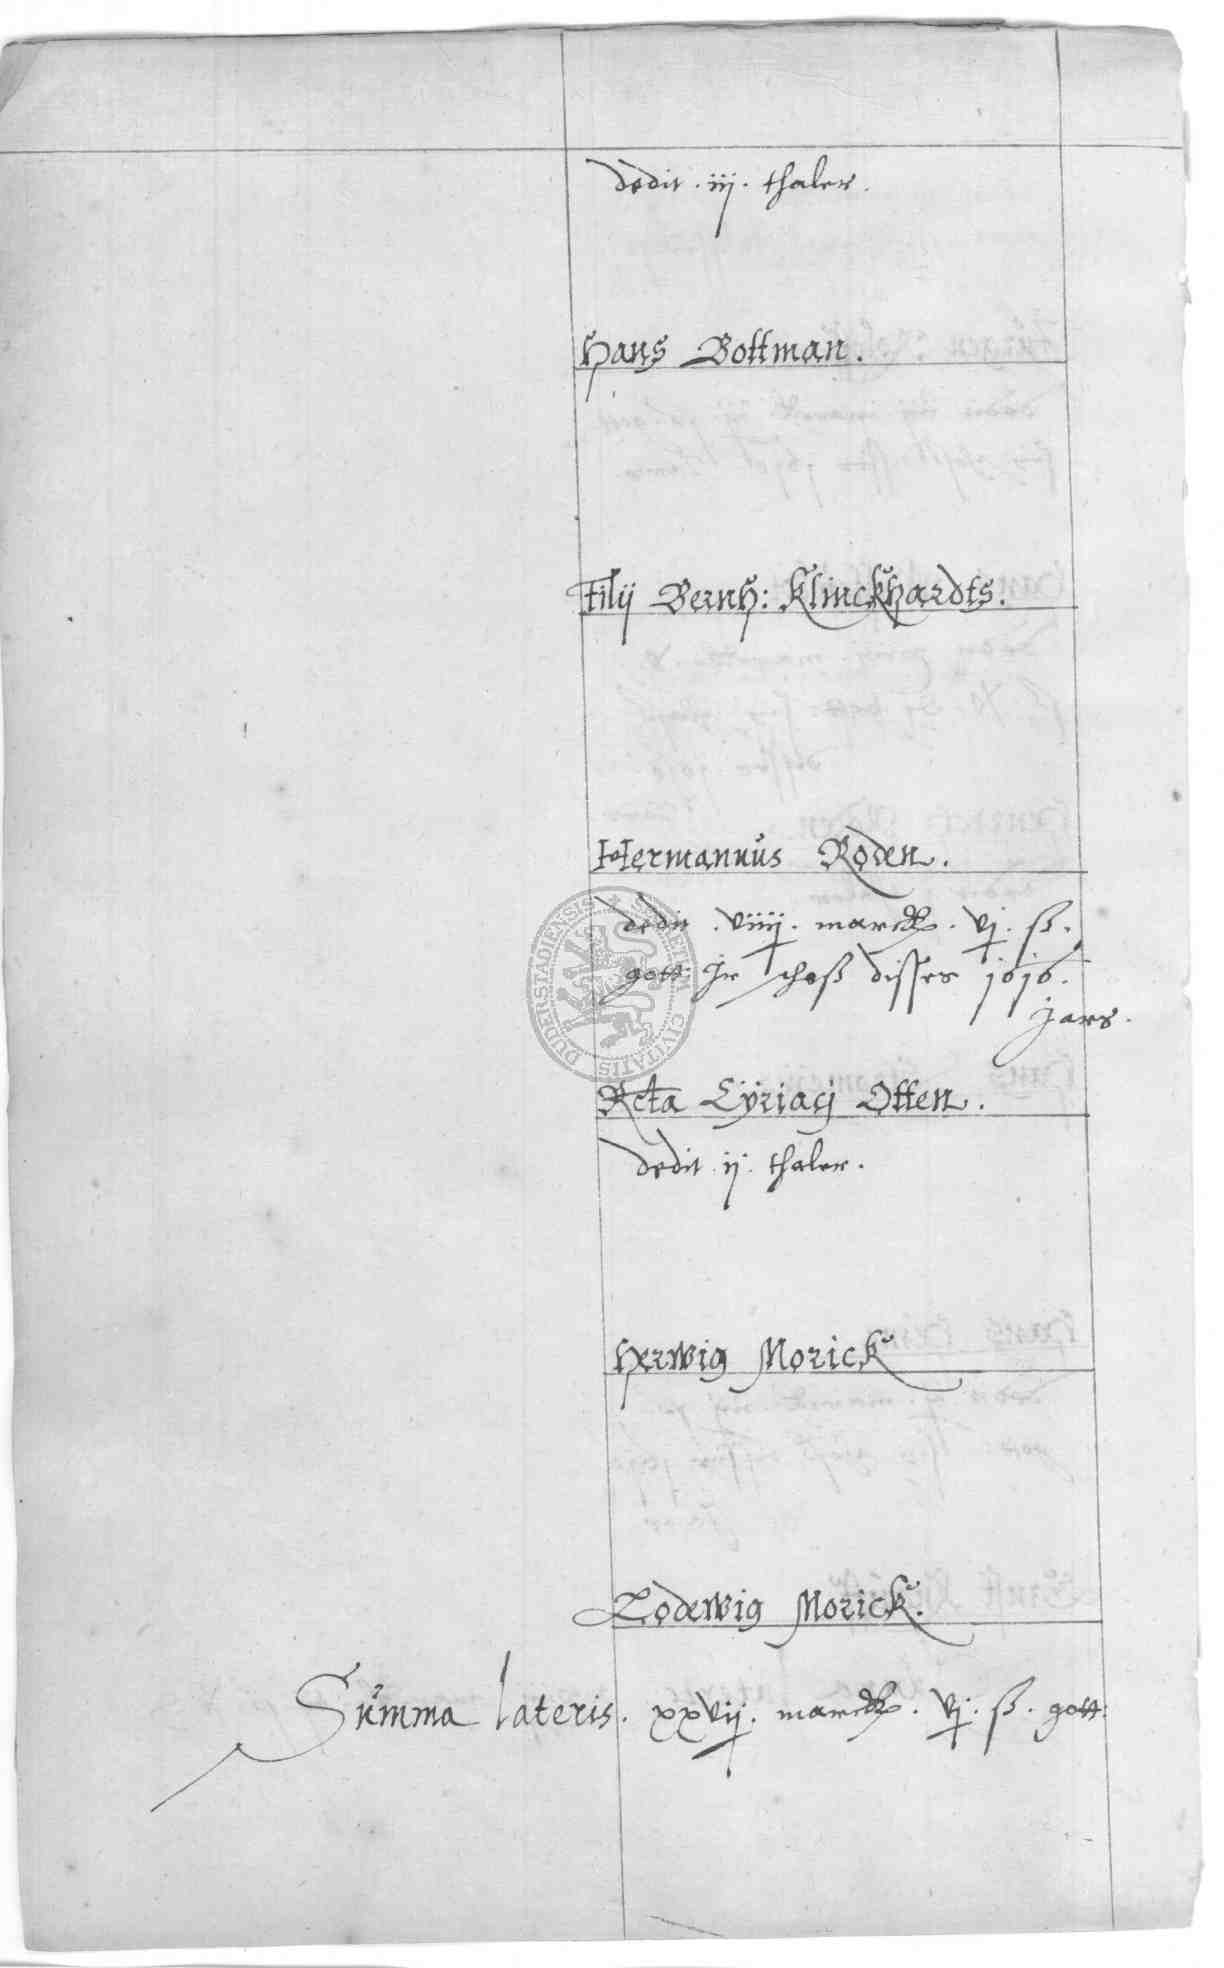 dedit . iij . thaler .
Hans Bottman .
Filij Bernh: Klinckhardts .
Hermannus Roden .
dedit . viiij . marck . vj . ß .
gott: Ir schoß disses 1616 .
Jars .
Rcta Cÿriacj Otten .
dedit . ij . thaler .
Herwig Morick
Lodewig Morick .
Summa lateris . xxvij . marck . vj . ß . gott:
SECRETUM CIVITATIS DUDERSTADIENSIS